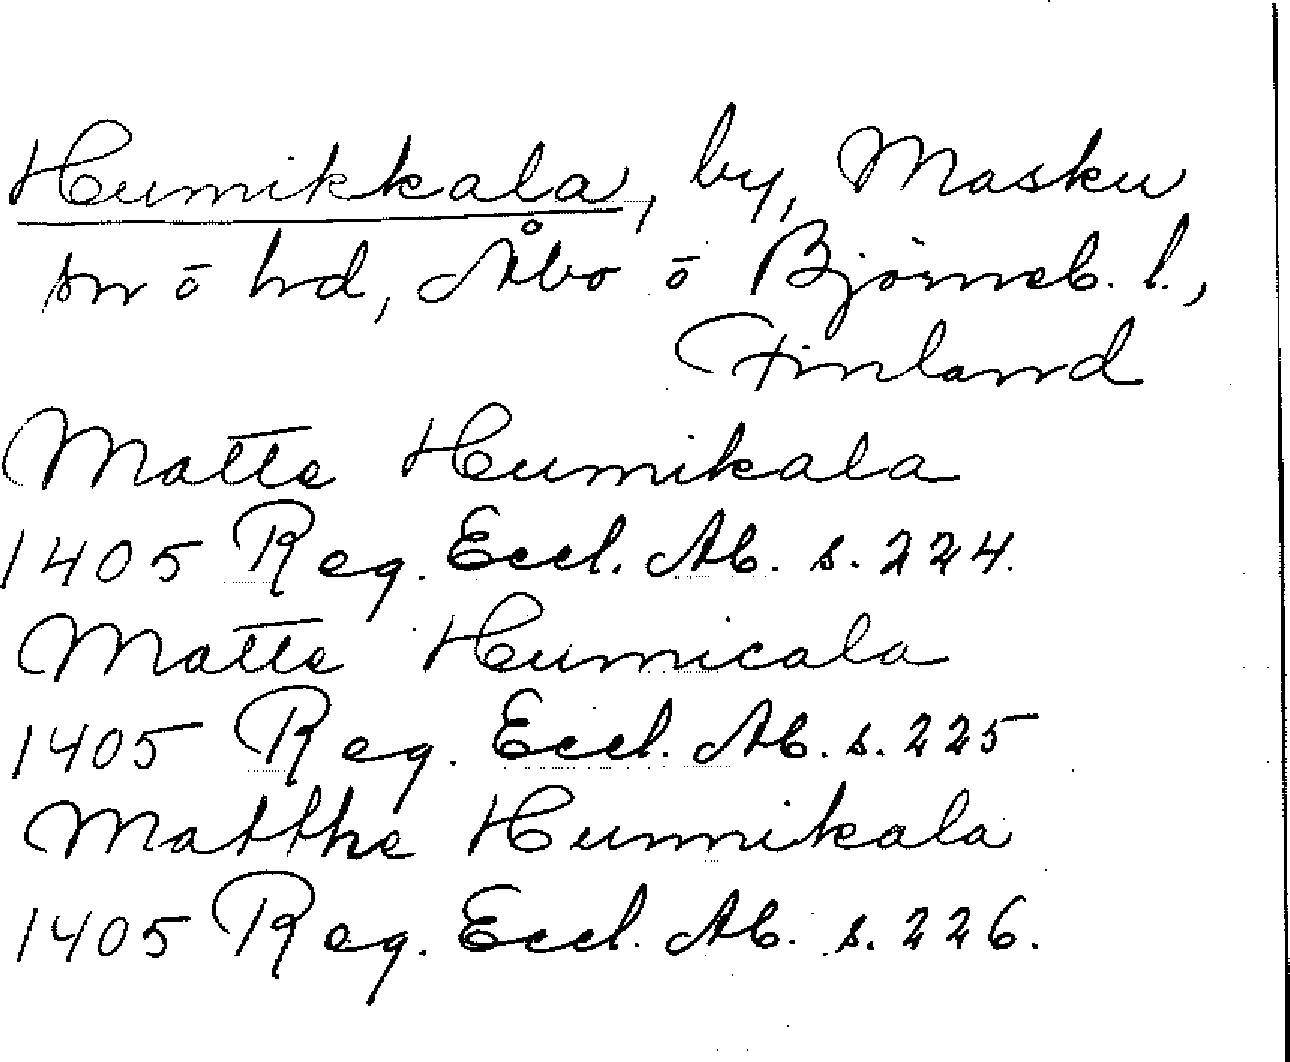 Humikkala, by, Masku
sn ō hd, Åbo ō Björneb. l.,
Finland
Matts Humikala
1405 Reg. Eccl. Ab. s. 224.
Matts Humicala
1405 Reg. Eccl. Ab. s. 225
Matthe Hunnikala
1405 Reg. Eccl. Ab. s. 226.